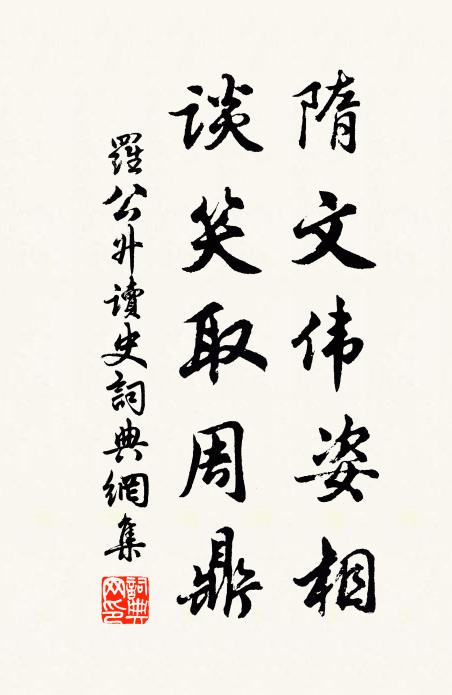 隋文伟姿相
谈笑取周鼎
羅公升讀史詞典網集
詞典网印